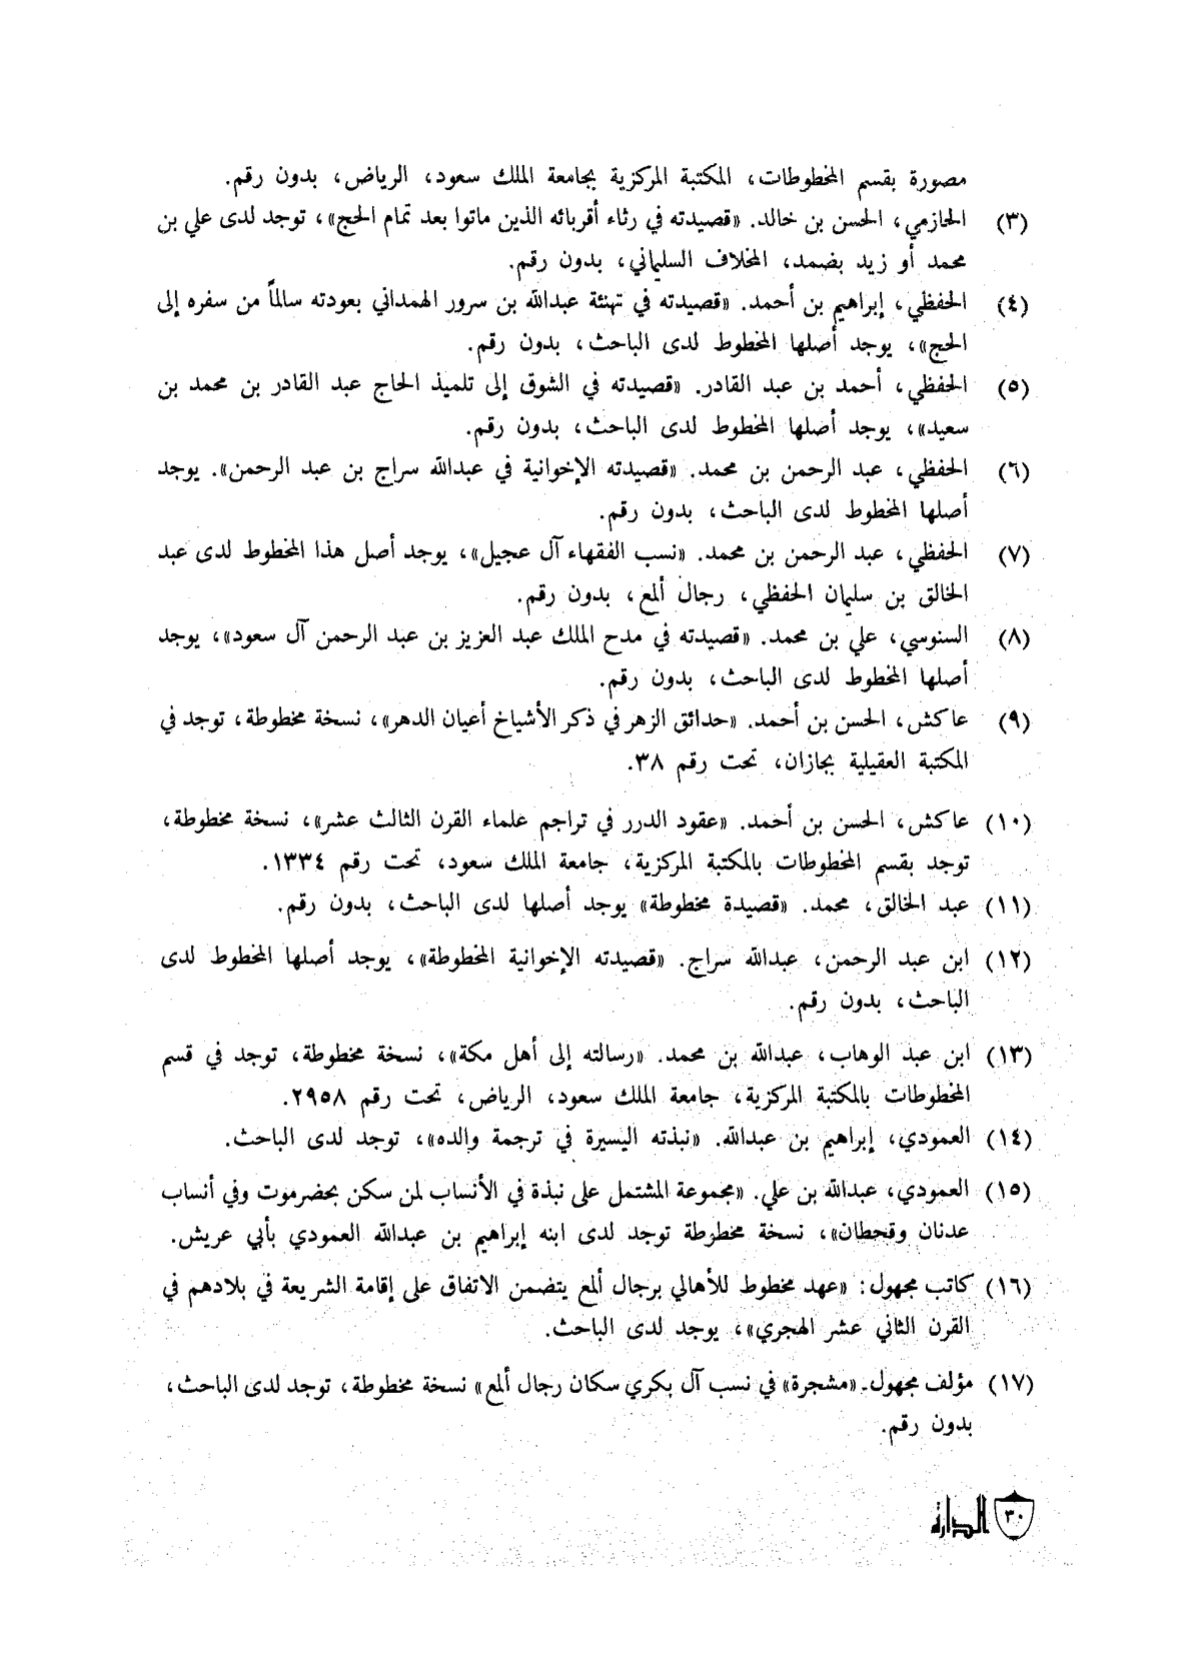 مصورة بقسم المخطوطات، المكتبة المركزية بجامعة الملك سعود، الرياض، بدون رقم.
(٣) الحازمي، الحسن بن خالد. «قصيدته في رثاء أقربائه الذين ماتوا بعد تمام الحج»، توجد لدى علي بن
محمد أو زيد بضمد، المخلاف السليماني، بدون رقم.
(٤) الحفظي، إبراهيم بن أحمد. «قصيدته في تهنئة عبدالله بن سرور الهمداني بعودته سالماً من سفره إلى
الحج»، يوجد أصلها المخطوط لدى الباحث، بدون رقم.
(٥) الحفظي، أحمد بن عبد القادر. «قصيدته في الشوق إلى تلميذ الحاج عبد القادر بن محمد بن
سعيد»، يوجد أصلها المخطوط لدى الباحث، بدون رقم.
(٦) الحفظي، عبد الرحمن بن محمد. «قصيدته الإخوانية في عبدالله سراج بن عبد الرحمن». يوجد
أصلها المخطوط لدى الباحث، بدون رقم.
(٧) الحفظي، عبد الرحمن بن محمد. «نسب الفقهاء آل عجيل»، يوجد أصل هذا المخطوط لدى عبد
الخالق بن سليمان الحفظي، رجال ألمع، بدون رقم.
(٨) السنوسي، علي بن محمد. «قصيدته في مدح الملك عبد العزيز بن عبد الرحمن آل سعود»، يوجد
أصلها المخطوط لدى الباحث، بدون رقم.
(٩) عاكش، الحسن بن أحمد. «حدائق الزهر في ذكر الأشياخ أعيان الدهر»، نسخة مخطوطة، توجد في
المكتبة العقيلية بجازان، تحت رقم ٣٨.
(١٠) عاكش، الحسن بن أحمد. «عقود الدرر في تراجم علماء القرن الثالث عشر»، نسخة مخطوطة،
توجد بقسم المخطوطات بالمكتبة المركزية، جامعة الملك سعود، تحت رقم ١٣٣٤.
(١١) عبد الخالق، محمد. «قصيدة مخطوطة» يوجد أصلها لدى الباحث، بدون رقم.
(١٢) ابن عبد الرحمن، عبدالله سراج. «قصيدته الإخوانية المخطوطة»، يوجد أصلها المخطوط لدى
الباحث، بدون رقم.
(١٣) ابن عبد الوهاب، عبدالله بن محمد. «رسالته إلى أهل مكة»، نسخة مخطوطة، توجد في قسم
المخطوطات بالمكتبة المركزية، جامعة الملك سعود، الرياض، تحت رقم ٢٩٥٨.
(١٤) العمودي، إبراهيم بن عبدالله. «نبذته اليسيرة في ترجمة والده»، توجد لدى الباحث.
(١٥) العمودي، عبدالله بن علي. «مجموعة المشتمل على نبذة في الأنساب لمن سكن بحضرموت وفي أنساب
عدنان وقحطان»، نسخة مخطوطة توجد لدى ابنه إبراهيم بن عبدالله العمودي بأبي عريش.
(١٦) كاتب مجهول: «عهد مخطوط للأهالي برجال ألمع يتضمن الاتفاق على إقامة الشريعة في بلادهم في
القرن الثاني عشر الهجري»، يوجد لدى الباحث.
(١٧) مؤلف مجهول. «مشجرة» في نسب آل بكري سكان رجال ألمع» نسخة مخطوطة، توجد لدى الباحث،
بدون رقم.
٣٠ الدارة